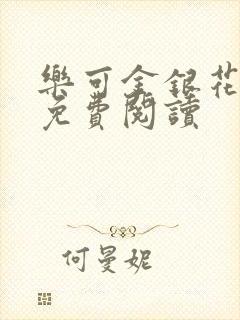 樂可金銀花
免費閱讀
何曼妮